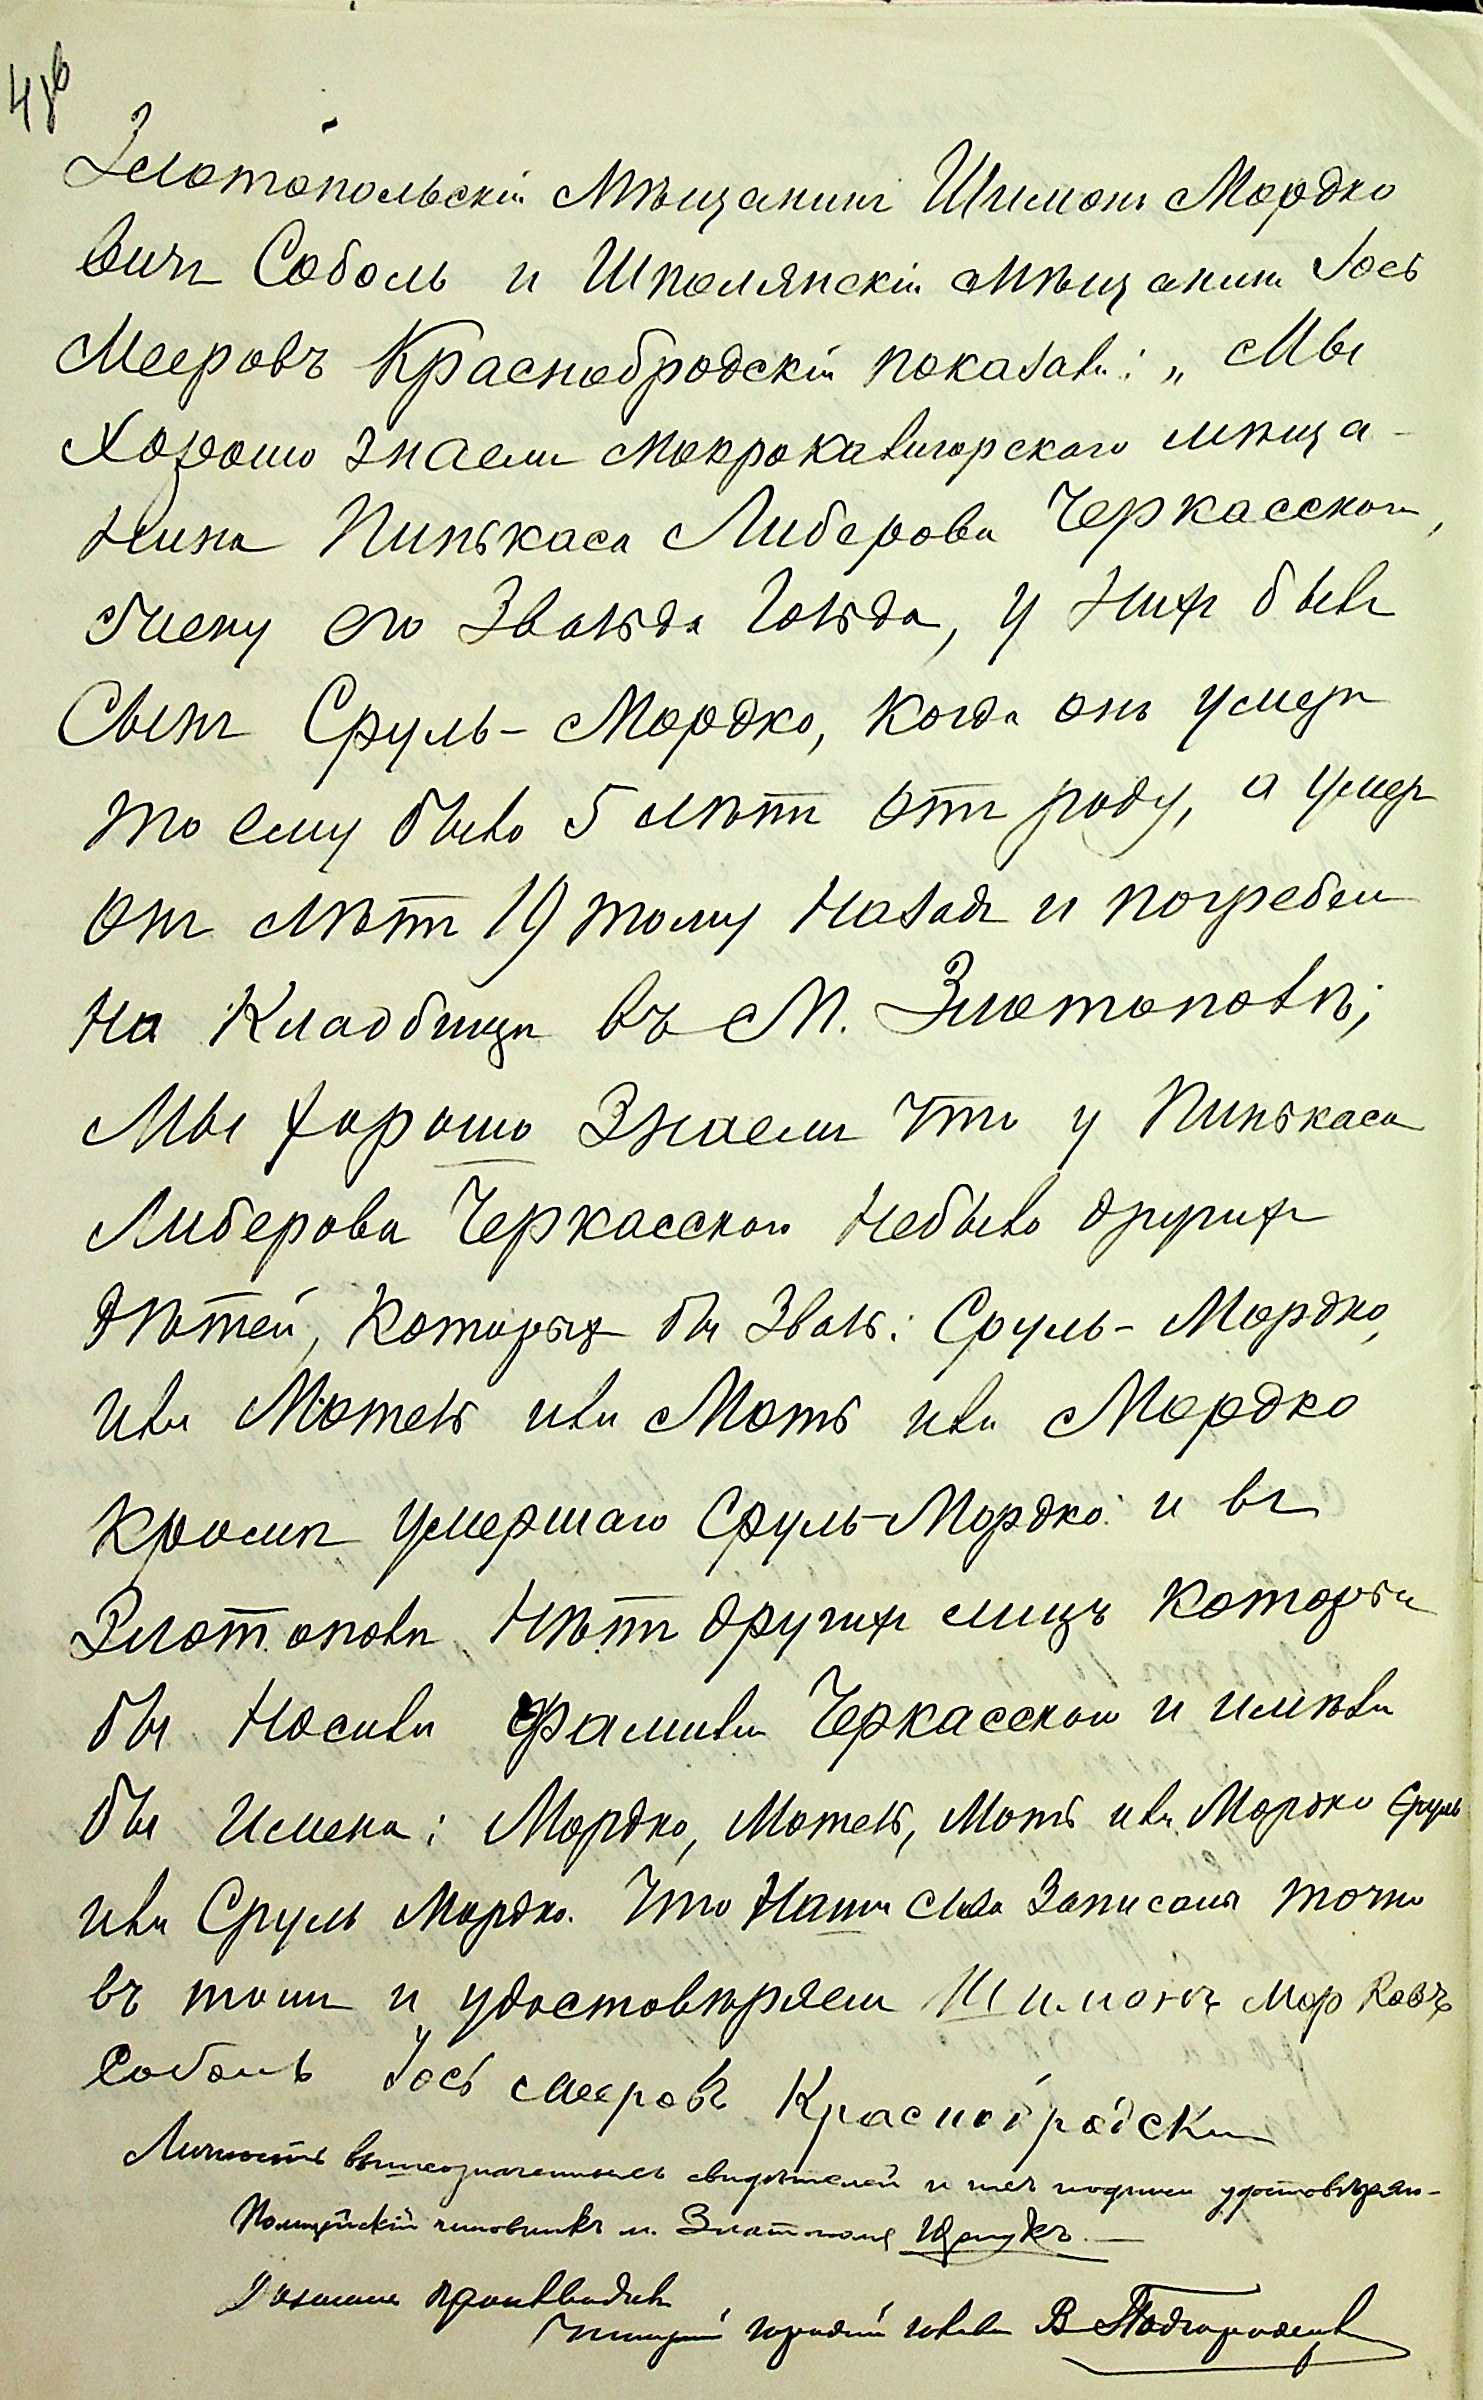 Златопольскій Мѣщанинъ Шимонъ Мордко
вичъ Соболь и Шполянскій Мѣщанинъ Іось
Мееровъ Краснобродскій показали: „Мы
хорошо знаемъ мокрокалигорского мѣща-
нина Пинькаса Либерова Черкасского,
жену его звать Гольда, у нихъ былъ
Сынъ Сруль-Мордко, когда онъ умеръ
то ему было 5 лѣтъ отъ роду, а умеръ
онъ лѣтъ 19 тому назадъ и погребенъ
на кладбищѣ въ М. Златополѣ;
Мы хорошо знаемъ что у Пинькаса
Либерова Черкасского небыло другихъ
дѣтей, которыхъ бы звали: Сруль-Мордко,
или Мотель или Моть или Мордко
кромѣ умершаго Сруль-Мордко и въ
Златополѣ нѣтъ другихъ лицъ которые
бы носили фамилію Черкасского и имѣли
бы имена: Мордко, Мотель, Моть или Мордко Сруль
или Сруль Мордко. Что наши слова записаны точно
въ томъ и удостовѣряемъ Шимонъ Морковъ
Соболь Іось Мееровъ Краснобродски
Личность вышеозначенныхъ свидѣтелей и ихъ подписи удостовѣряю-
Полицейскій чиновникъ м. Златополя
Дознаніе производилъ
городской голова В Подгородецкій